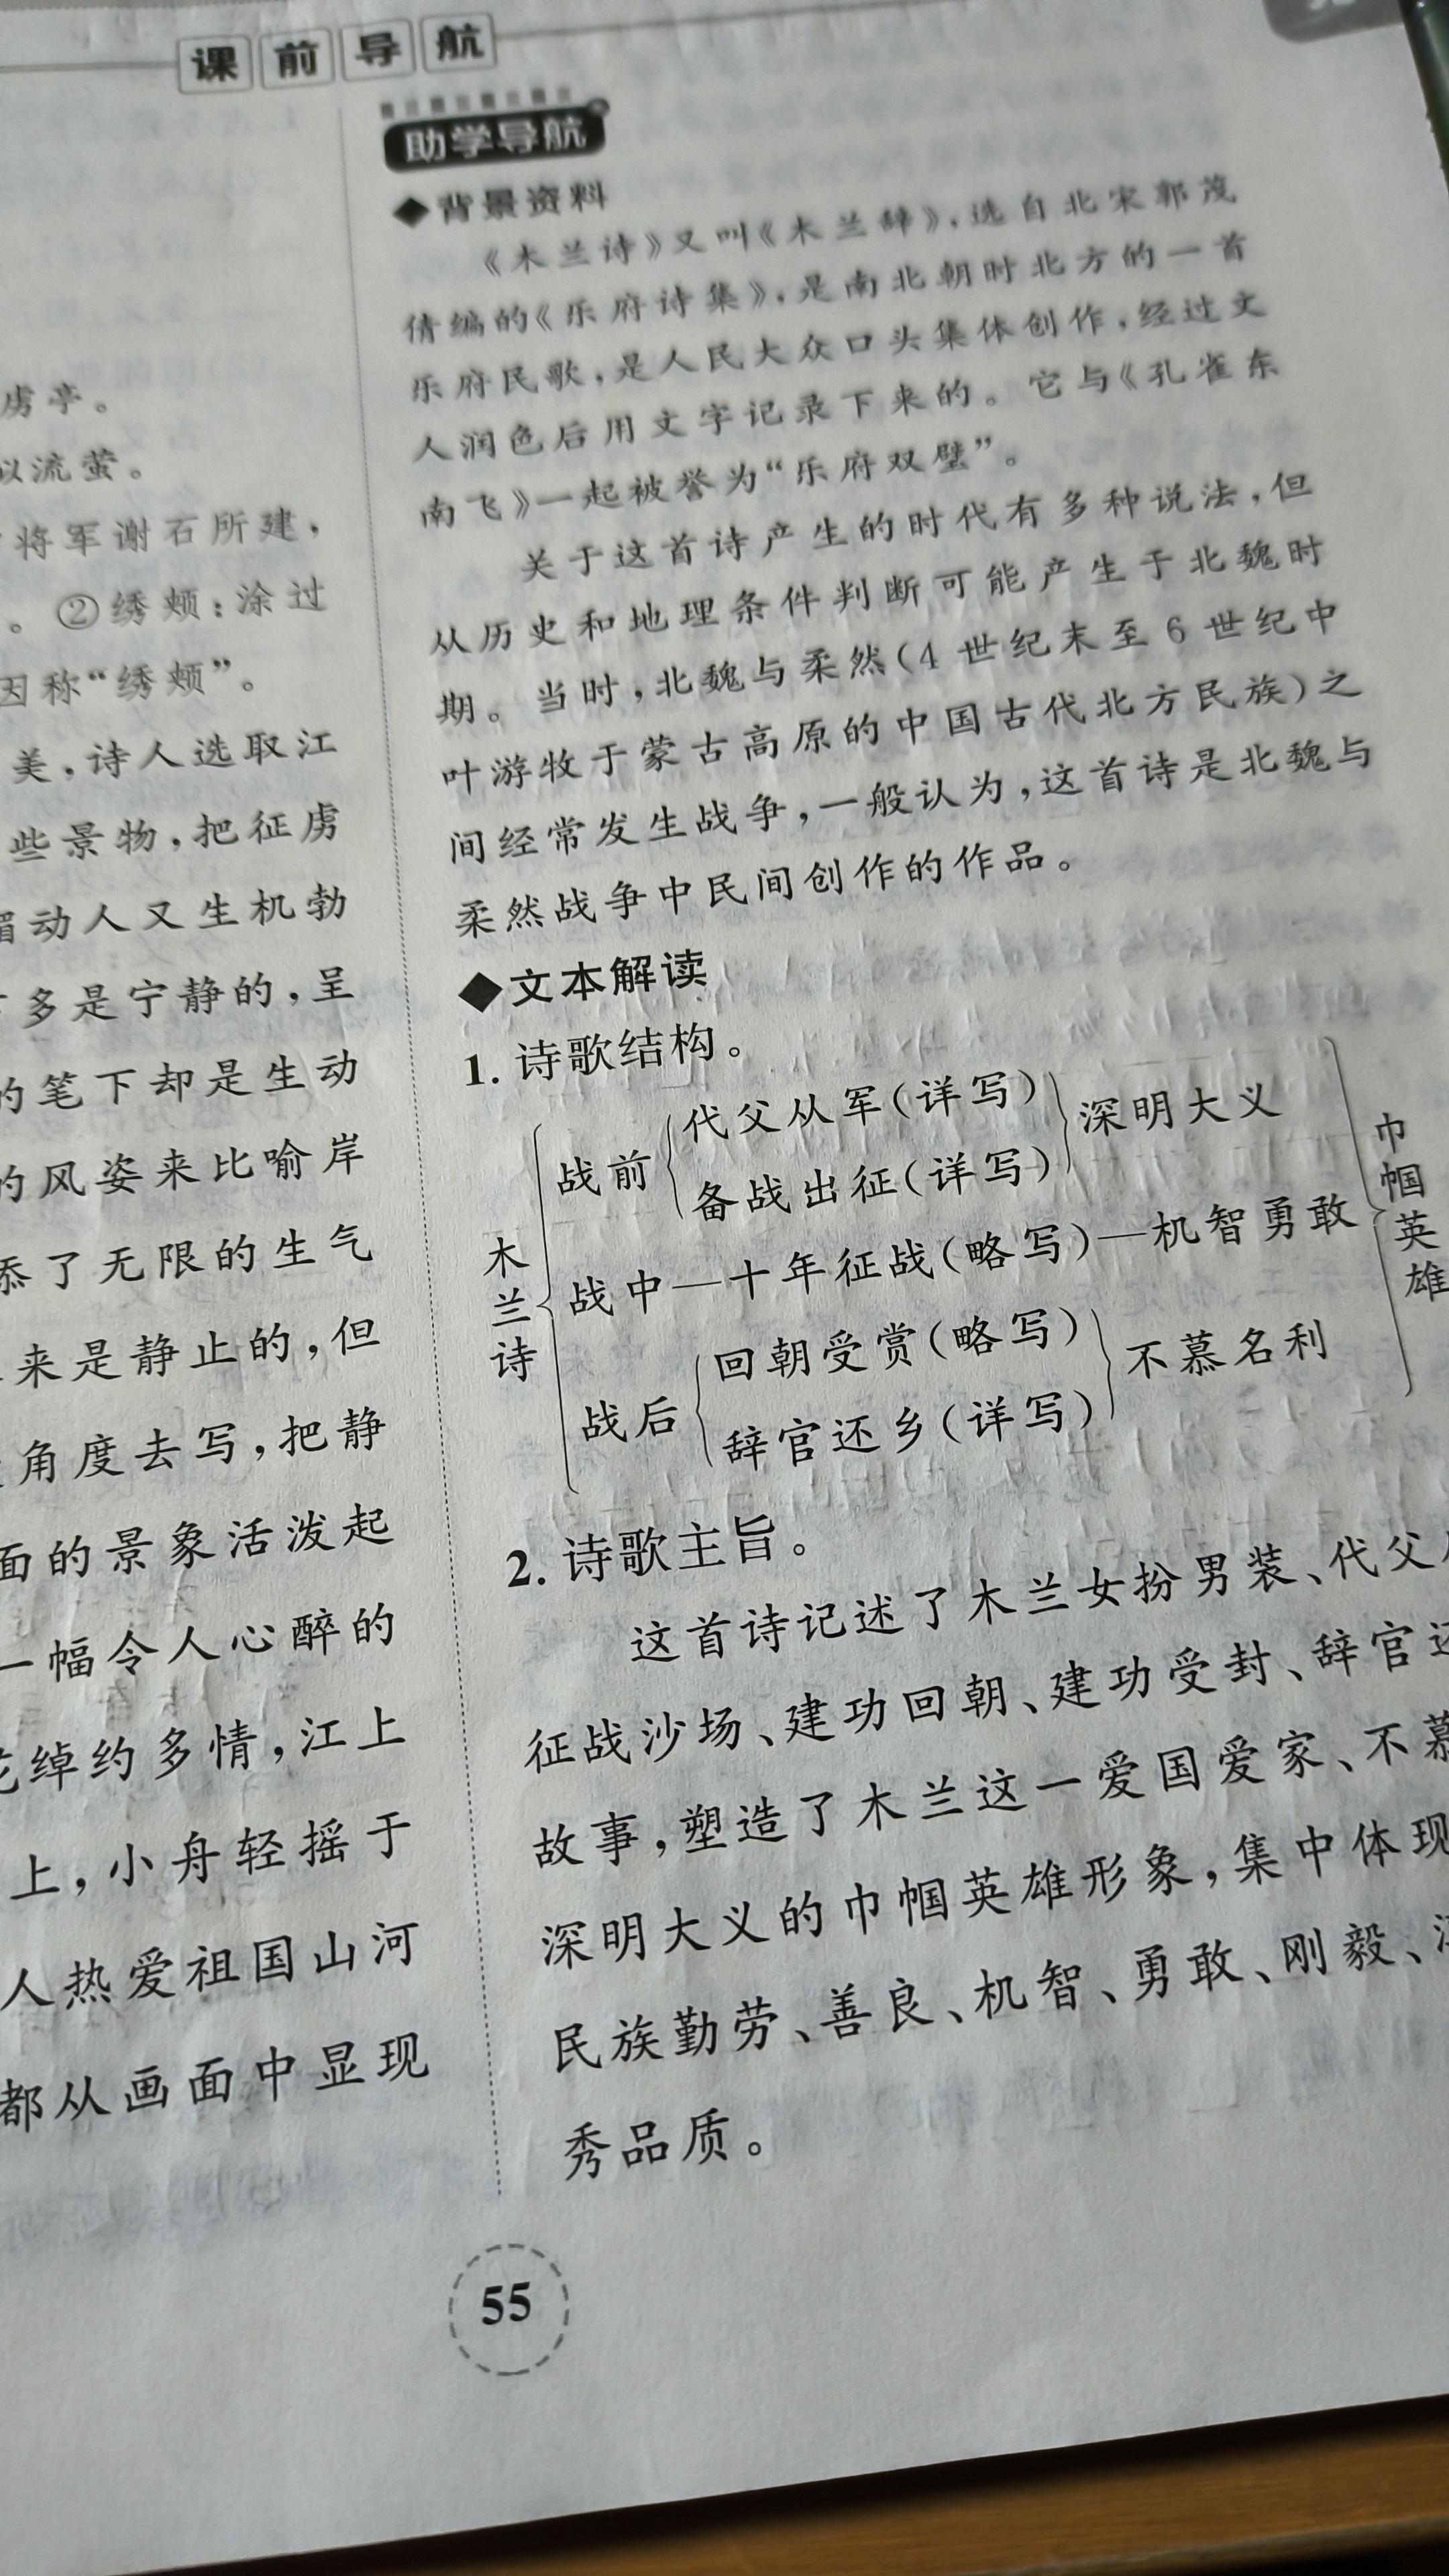 课前导航
虏亭。
以流萤。
将军谢石所建，
。②绣颊：涂过
因称“绣颊”。
美，诗人选取江
些景物，把征虏
动人又生机勃
多是宁静的，呈
的笔下却是生动
的风姿来比喻岸
添了无限的生气
来是静止的，但
角度去写，把静
面的景象活泼起
一幅令人心醉的
绰约多情，江上
上，小舟轻摇于
人热爱祖国山河
都从画面中显现
助学导航
◆背景资料
《木兰诗》又叫《木兰辞》，选自北宋郭茂
倩编的《乐府诗集》，是南北朝时北方的一首
乐府民歌，是人民大众口头集体创作，经过文
人润色后用文字记录下来的。它与《孔雀东
南飞》一起被誉为“乐府双璧”。
关于这首诗产生的时代有多种说法，但
从历史和地理条件判断可能产生于北魏时
期。当时，北魏与柔然（4世纪末至6世纪中
叶游牧于蒙古高原的中国古代北方民族）之
间经常发生战争，一般认为，这首诗是北魏与
柔然战争中民间创作的作品。
◆文本解读
1. 诗歌结构。
木兰诗
战前
代父从军（详写）
备战出征（详写）
深明大义
战中—十年征战（略写）—机智勇敢
战后
回朝受赏（略写）
辞官还乡（详写）
不慕名利
巾帼英雄
2. 诗歌主旨。
这首诗记述了木兰女扮男装、代父
征战沙场、建功回朝、建功受封、辞官还
故事，塑造了木兰这一爱国爱家、不慕
深明大义的巾帼英雄形象，集中体现
民族勤劳、善良、机智、勇敢、刚毅、
秀品质。
55